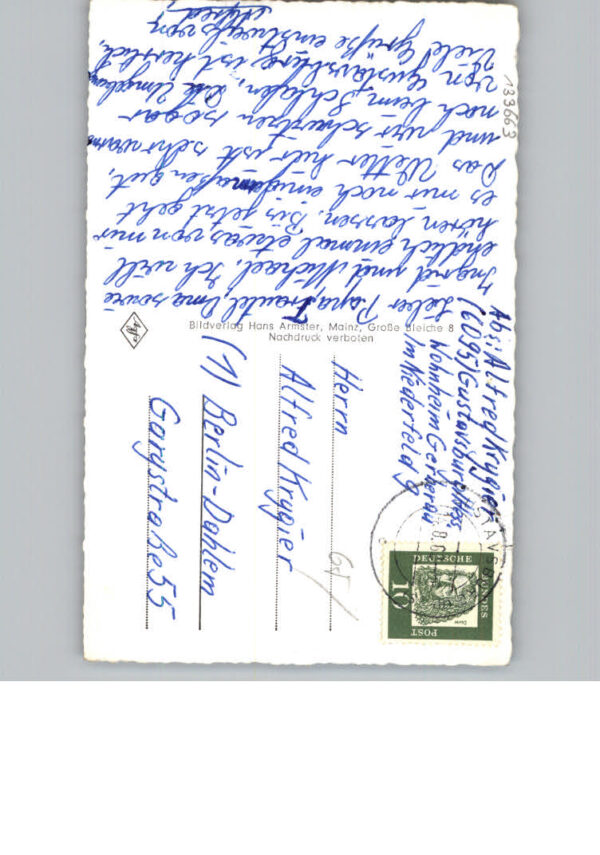 Lieber Papa, Trautel, Oma sowie
Ingrid und Michael, Ich will
endlich einmal etwas von mir
hören lassen. Bis jetzt geht
es mir noch einigermaßen gut,
Das Wetter hier ist sehr warm
und wir schwitzen sogar
noch beim Schlafen, Die Umgebung
von Gustavsburg ist herrlich,
Viele Grüße einstweilen von
Alfred
133663
Agfa
Bildverlag Hans Armster, Mainz, Große Bleiche 8
Nachdruck verboten
Abs: Alfred Krygier
(6095) Gustavsburg/Hess
Wohnheim Gerberau
Im Niederfeld 9
Herrn
Alfred Krygier
(1) Berlin-Dahlem
Garystraße 55
DEUTSCHE
BUNDES
POST
10